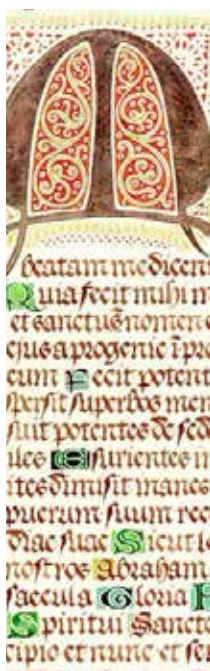 M
beatam me dicent
Quia fecit mihi m
et sanctū nomen e
ejus a progenie ī pro
eum Fecit potent
spersit superbos men
suit potentes de sed
iles Esurientes
ites dimisit inanes
puerum suum rec
diae suae Sicut l
nostros Abraham
saecula Gloria P
Spiritui Sancto
cipio et nunc et se